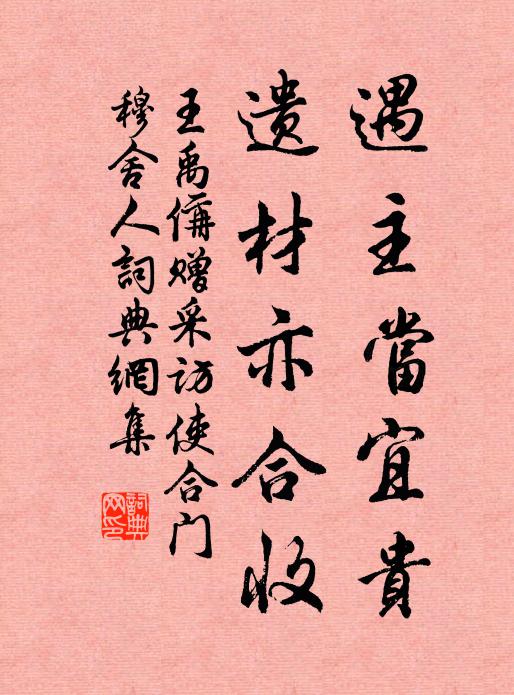 遇主當宜貴
遺材亦合收
王禹偁贈采訪使合门
穆舍人詞典網集
詞典网印